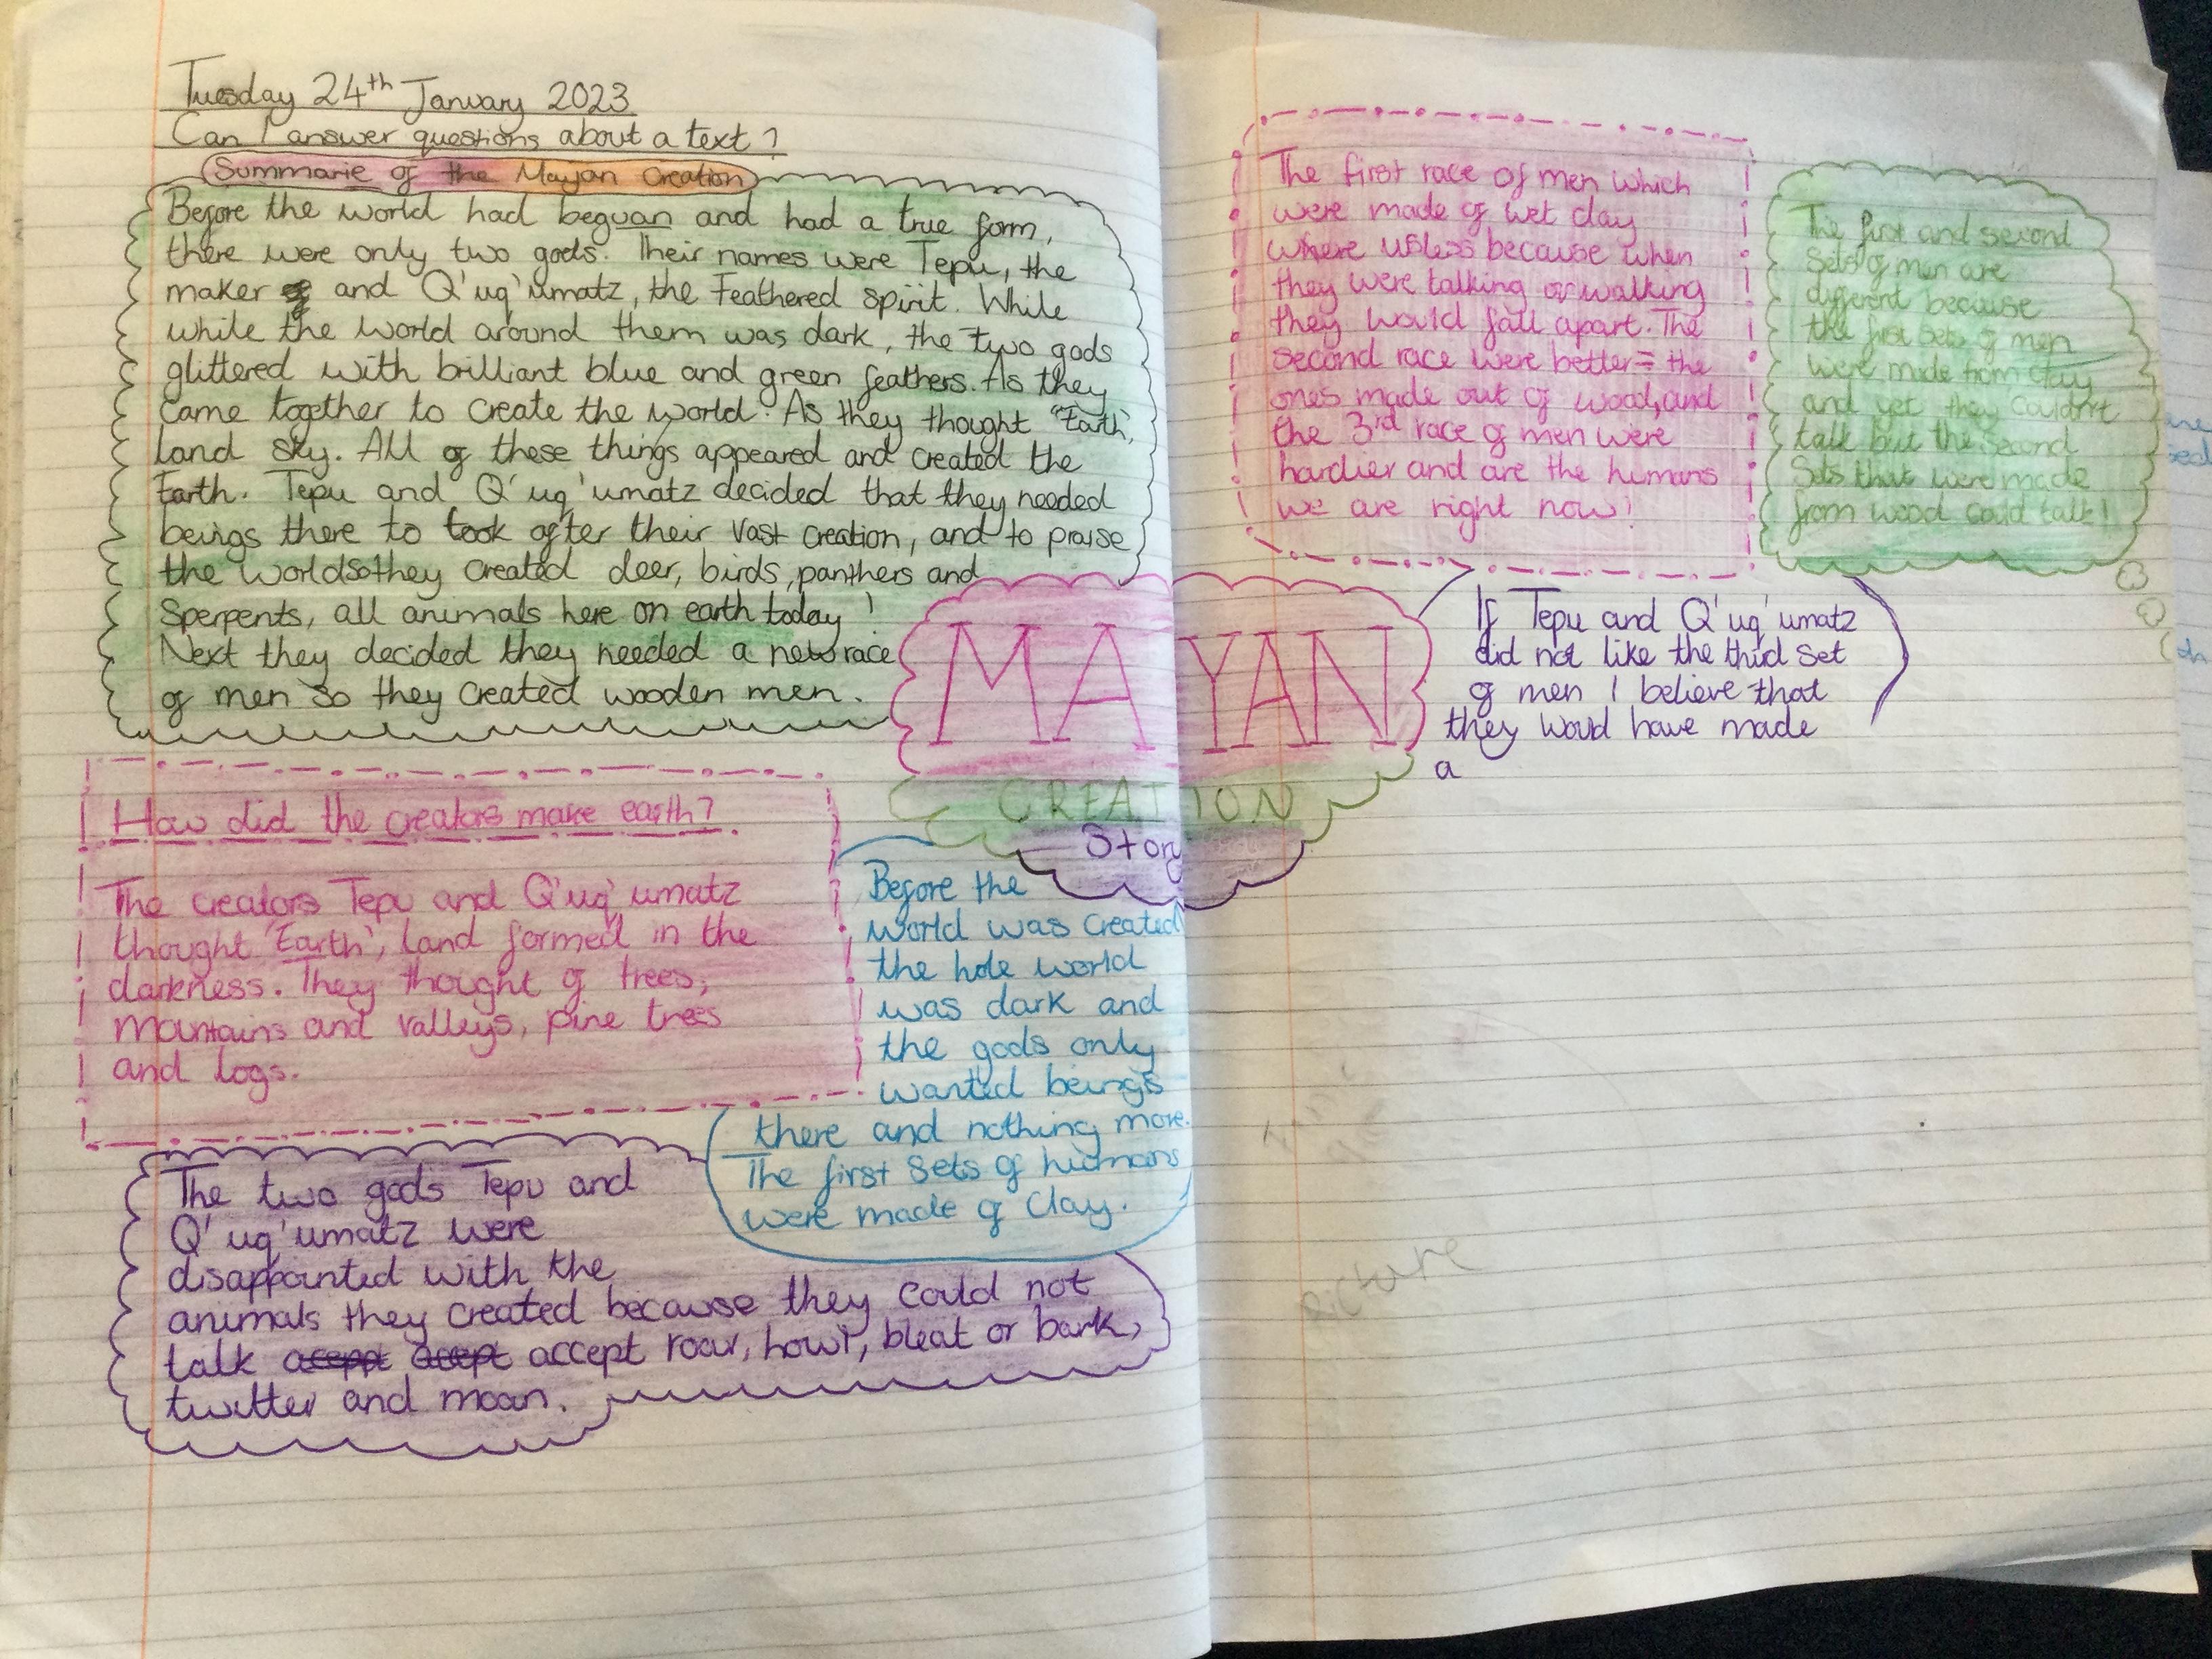 Tuesday 24th January 2023
Can I answer questions about a text?
Summarie of the Mayan Creation
Before the world had beguan and had a true form,
there were only two gods. Their names were Tepu, the
maker and Q'uq'umatz, the Feathered spirit. While
while the world around them was dark, the two gods
glittered with brilliant blue and green feathers. As they
came together to create the world. As they thought "Earth',
land sky. All of these things appeared and created the
Earth. Tepu and Q'uq'umatz decided that they needed
beings there to look after their vast creation, and to praise
the worldsothey created deer, birds, panthers and
Sperpents, all animals here on earth today!
Next they decided they needed a new race
of men so they created wooden men.
MAYAN
CREATION
Story
How did the creators make earth?
The creators Tepu and Q'uq'umatz
thought 'Earth', land formed in the
darkness. They thought of trees,
mountains and valleys, pine trees
and logs.
Before the
world was created
the hole world
was dark and
the gods only
wanted beings
there and nothing more.
The first sets of humans
were made of clay.
The two gods Tepu and
Q'uq'umatz were
disappointed with the
animals they created because they could not
talk accept roar, howl, bleat or bark,
twitter and moan.
The first race of men which
were made of wet clay
where usless because when
they were talking or walking
they would fall apart. The
second race were better = the
ones made out of wood, and
the 3rd race of men were
hardier and are the humans
we are right now!
The first and second
sets of men are
different because
the first sets of men
were made from clay
and yet they couldn't
talk but the second
sets that were made
from wood could talk!
If Tepu and Q'uq'umatz
did not like the third set
of men I believe that
they would have made
a
Picture